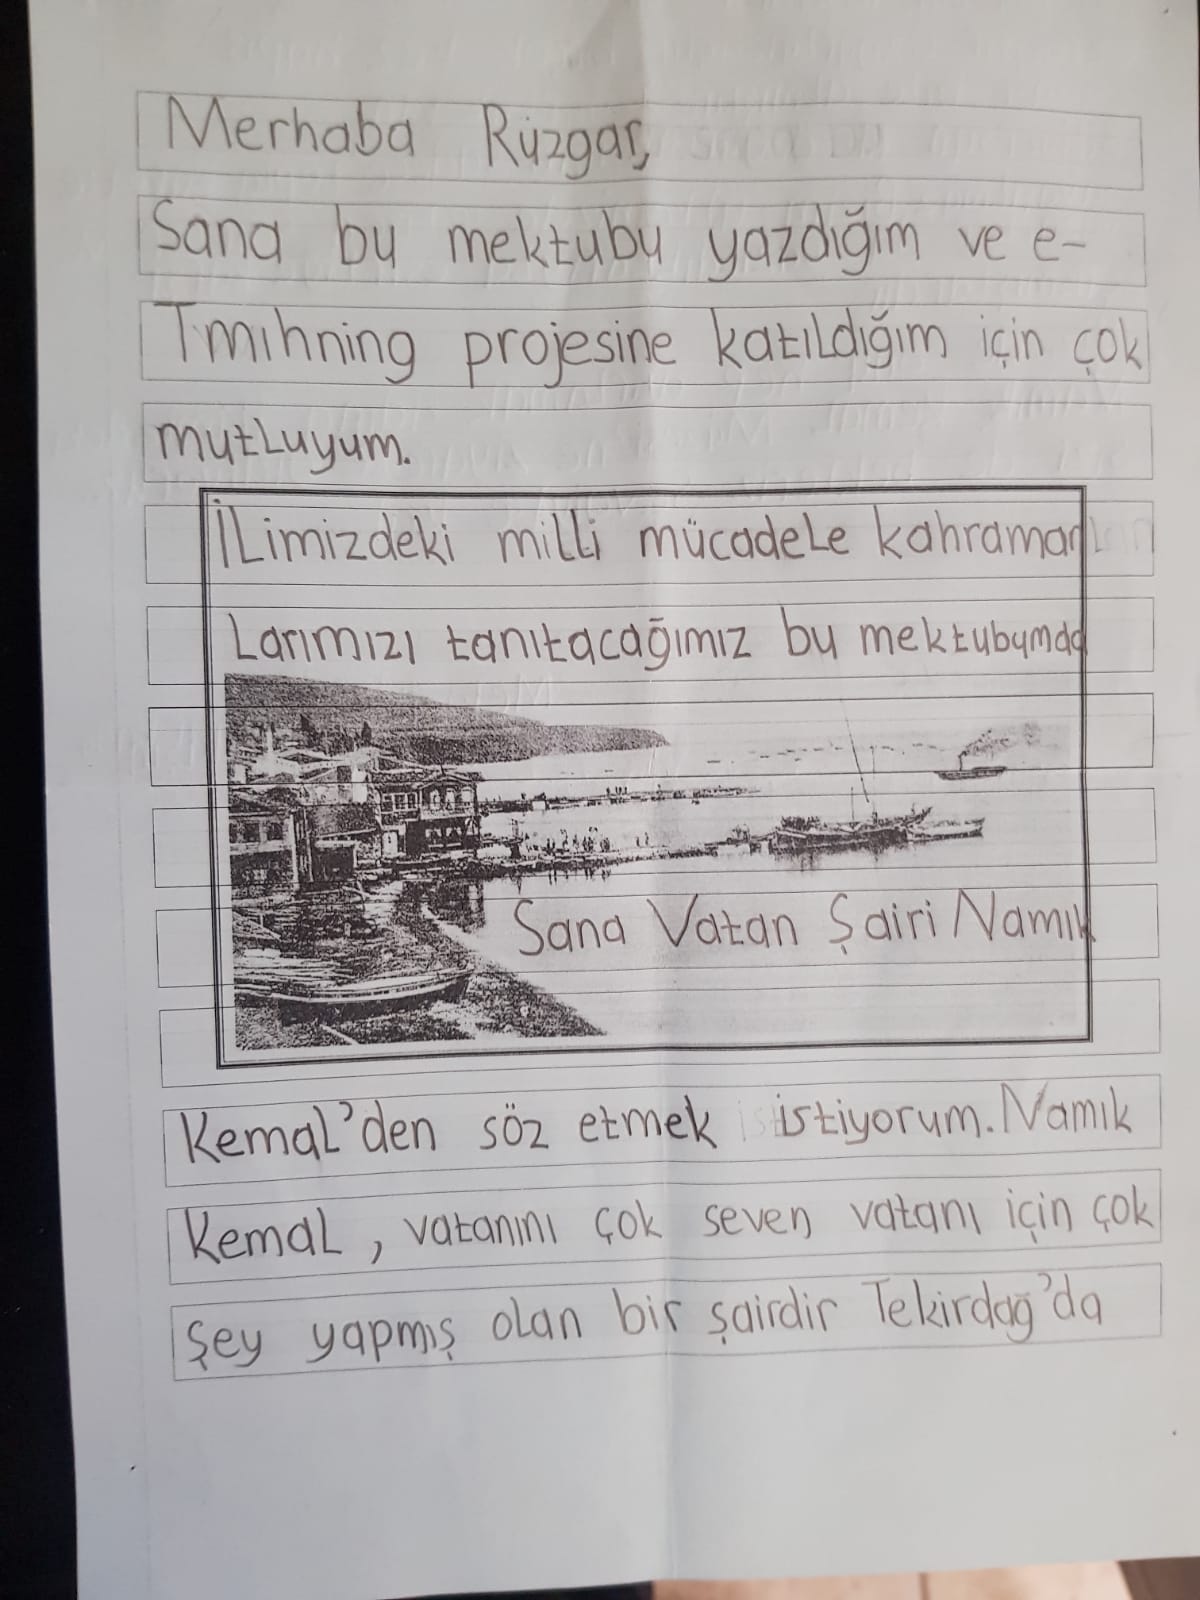 Merhaba Rüzgar,
Sana bu mektubu yazdığım ve e-
Tmıhning projesine katıldığım için çok
mutluyum.
İLimizdeki milli mücadele kahraman
Larımızı tanıtacağımız bu mektubumda
Sana Vatan Şairi Namık
Kemal'den söz etmek istiyorum. Namık
Kemal, vatanını çok seven vatanı için çok
şey yapmış olan bir şairdir Tekirdağ'da